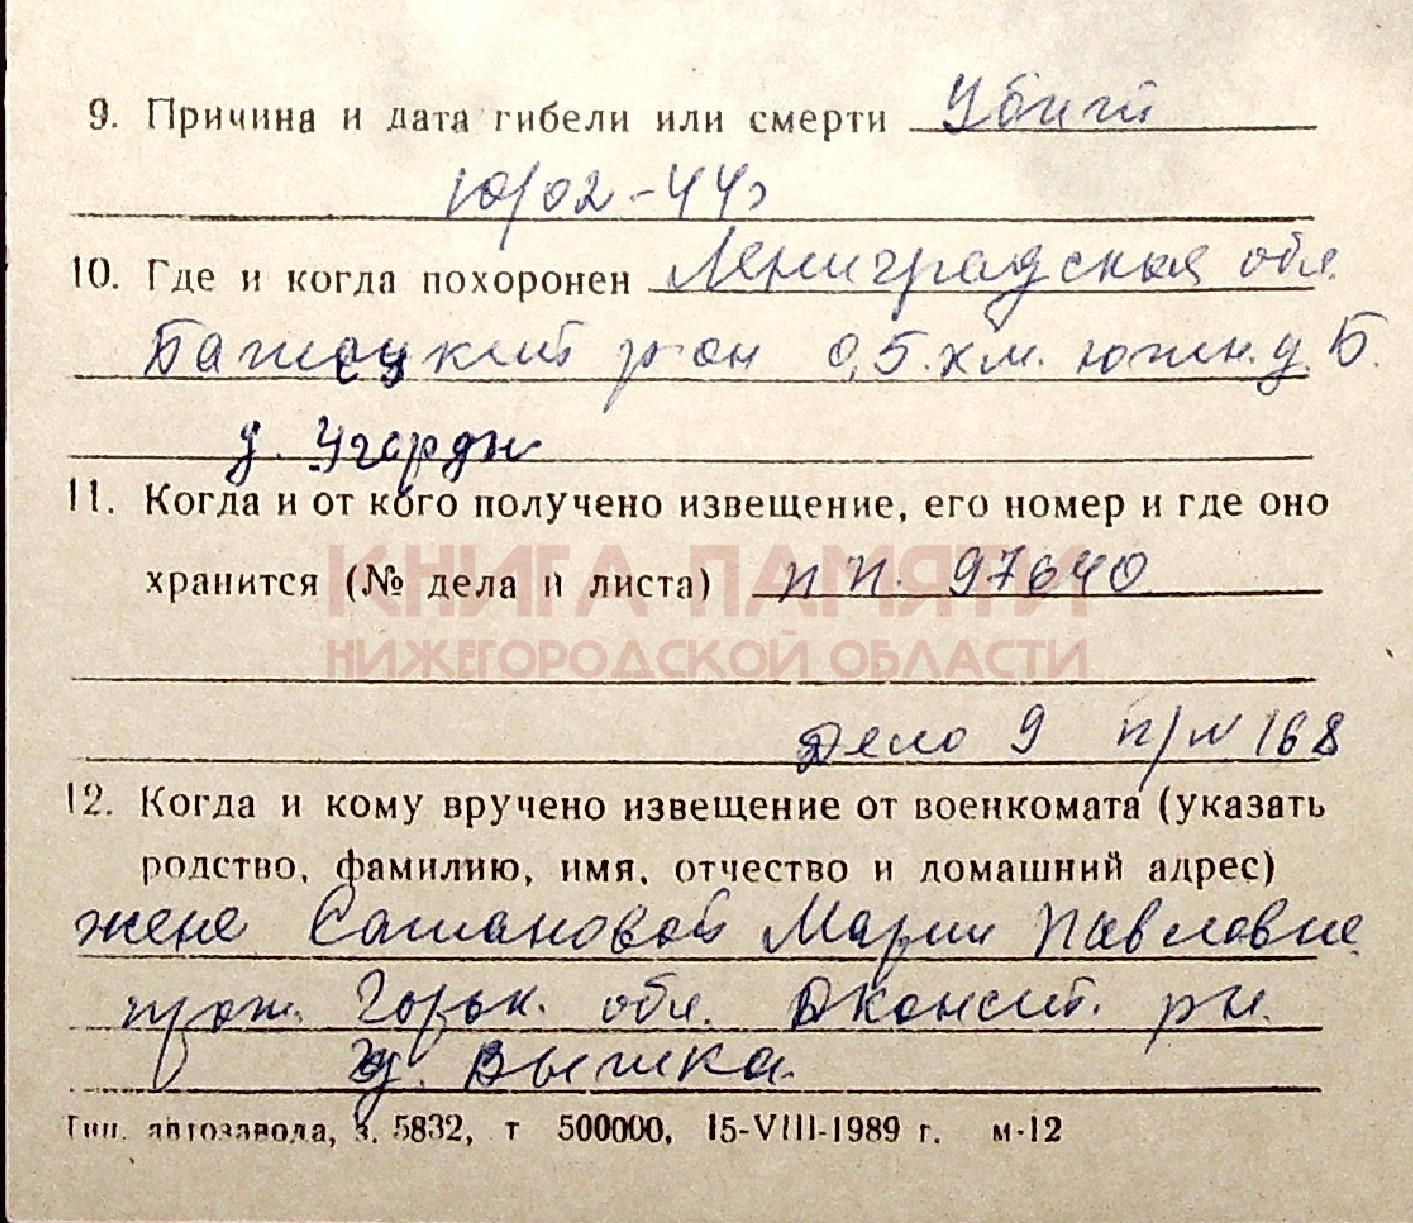 9. Причина и дата гибели или смерти Убит
10/02-44г
10. Где и когда похоронен Ленинградская обл.
Батецкий р-он 0,5 км. южн. д. Б.
д. Угорды
11. Когда и от кого получено извещение, его номер и где оно
КНИГА ПАМЯТИ
хранится (№ дела и листа) п п. 97640
НИЖЕГОРОДСКОЙ ОБЛАСТИ
Дело 9 п/н 168
12. Когда и кому вручено извещение от военкомата (указать
родство, фамилию, имя, отчество и домашний адрес)
жене Сатановой Марии Павловне
прож. Горьк. обл. рн.
Тип. автозавода, з. 5832, т 500000, 15-VIII-1989 г. м-12